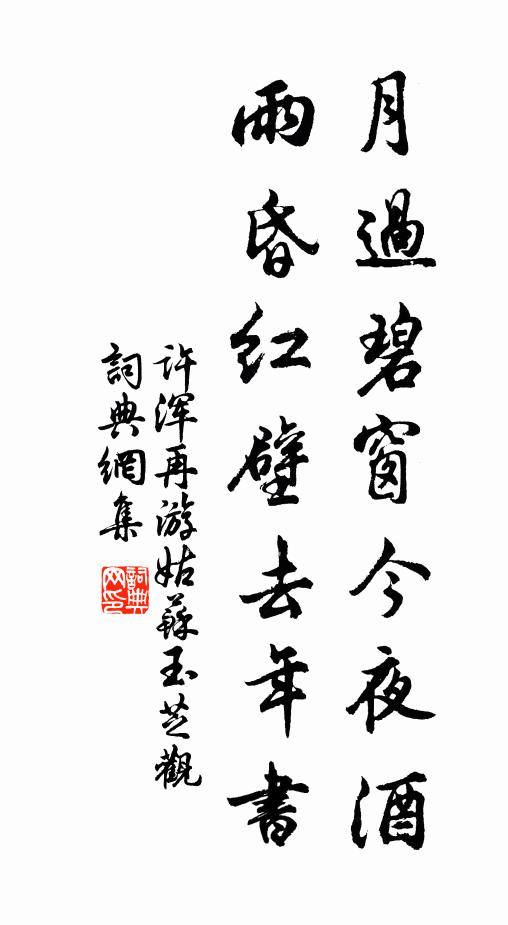 月過碧窗今夜酒
雨昏紅壁去年書
许渾再游姑蘇玉芝觀
詞典網集
詞典
网印